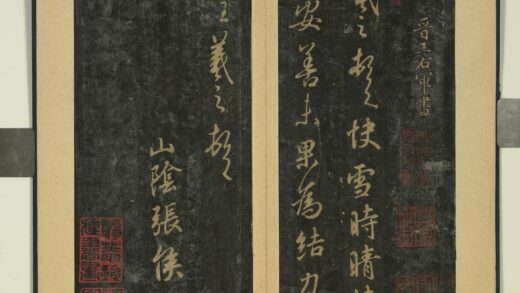 晋王右軍書
羲之頓首快雪時晴
安善未果為結力
王羲之頓首
山陰張侯